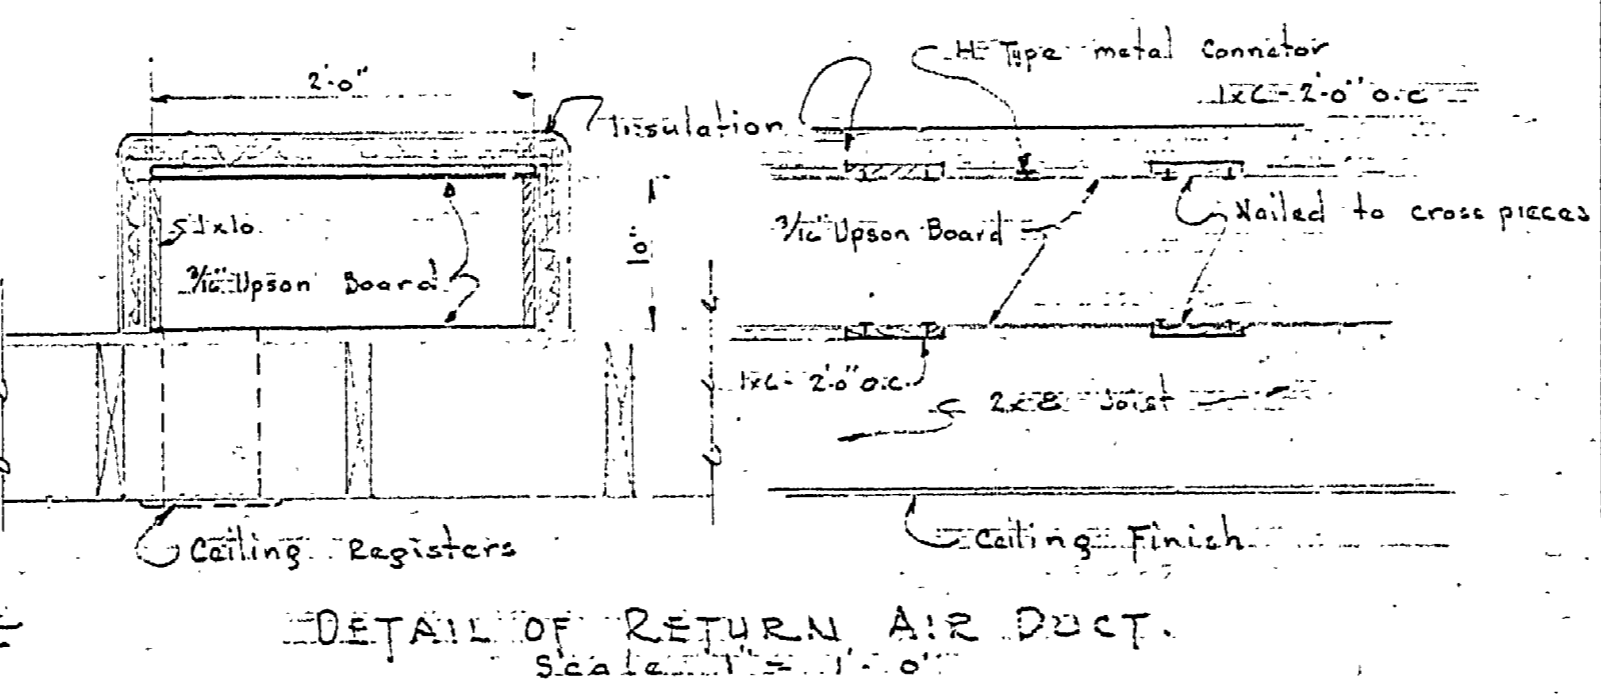 2'-0"
Insulation
H-Type metal Connetor
1x6 - 2'-0" o.c
1x10
3/16" Upson Board
10"
3/16" Upson Board
Nailed to cross pieces
1x6 - 2'-0" o.c.
2x8 Joist
Ceiling Registers
Ceiling Finish
DETAIL OF RETURN AIR DUCT.
Scale 1" = 1'-0"